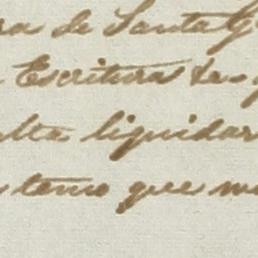 ra de Santa G
Escritura
liquidar
temo que